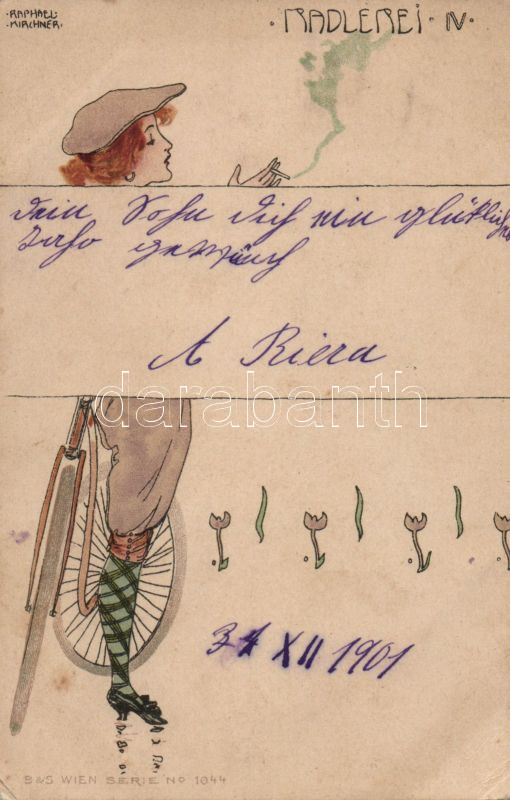 ·RAPHAEL·
·KIRCHNER·
·RADLEREI· IV·
dein Sohn dich ein glüklich
gewünsch
A Riera
darabanth
31 XII 1901
B&S WIEN SERIE No 1044